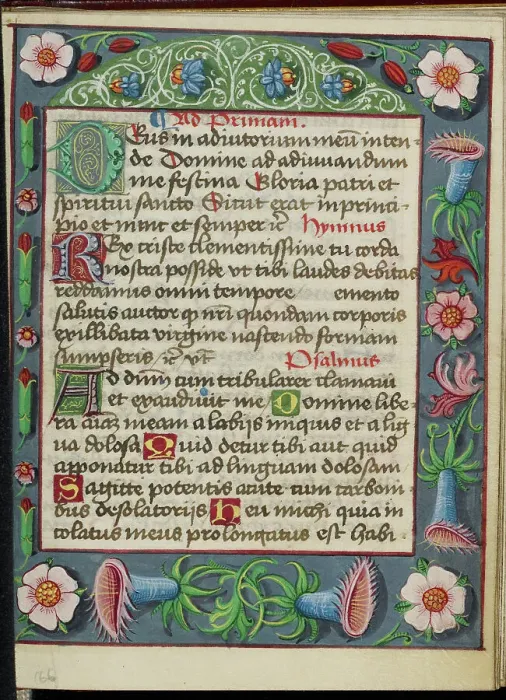 Ad Primam.
Deus in adiutorium meū inten-
de Domine ad adiuuandum
me festina Gloria patri et
spiritui sancto Sicut erat in princi-
pio et nunc et semper ꝛc̄ Hymnus
Rex criste clementissime tu corda
nostra posside vt tibi laudes debitas
reddamus omni tempore emento
salutis auctor q nr̄i quondam corporis
exillibata virgine nascendo formam
sumpseris ꝛc̄ vt Psalmus
Ad dn̄m cum tribularer clamaui
et exaudiuit me Domine libe-
ra aīam meam a labijs iniquis et a lig
ua dolosa Quid detur tibi aut quid
apponatur tibi ad linguam dolosam
Sagitte potentis acute cum carboni-
bus desolatorijs Heu michi quia in
colatus meus prolongatus est habi-
166